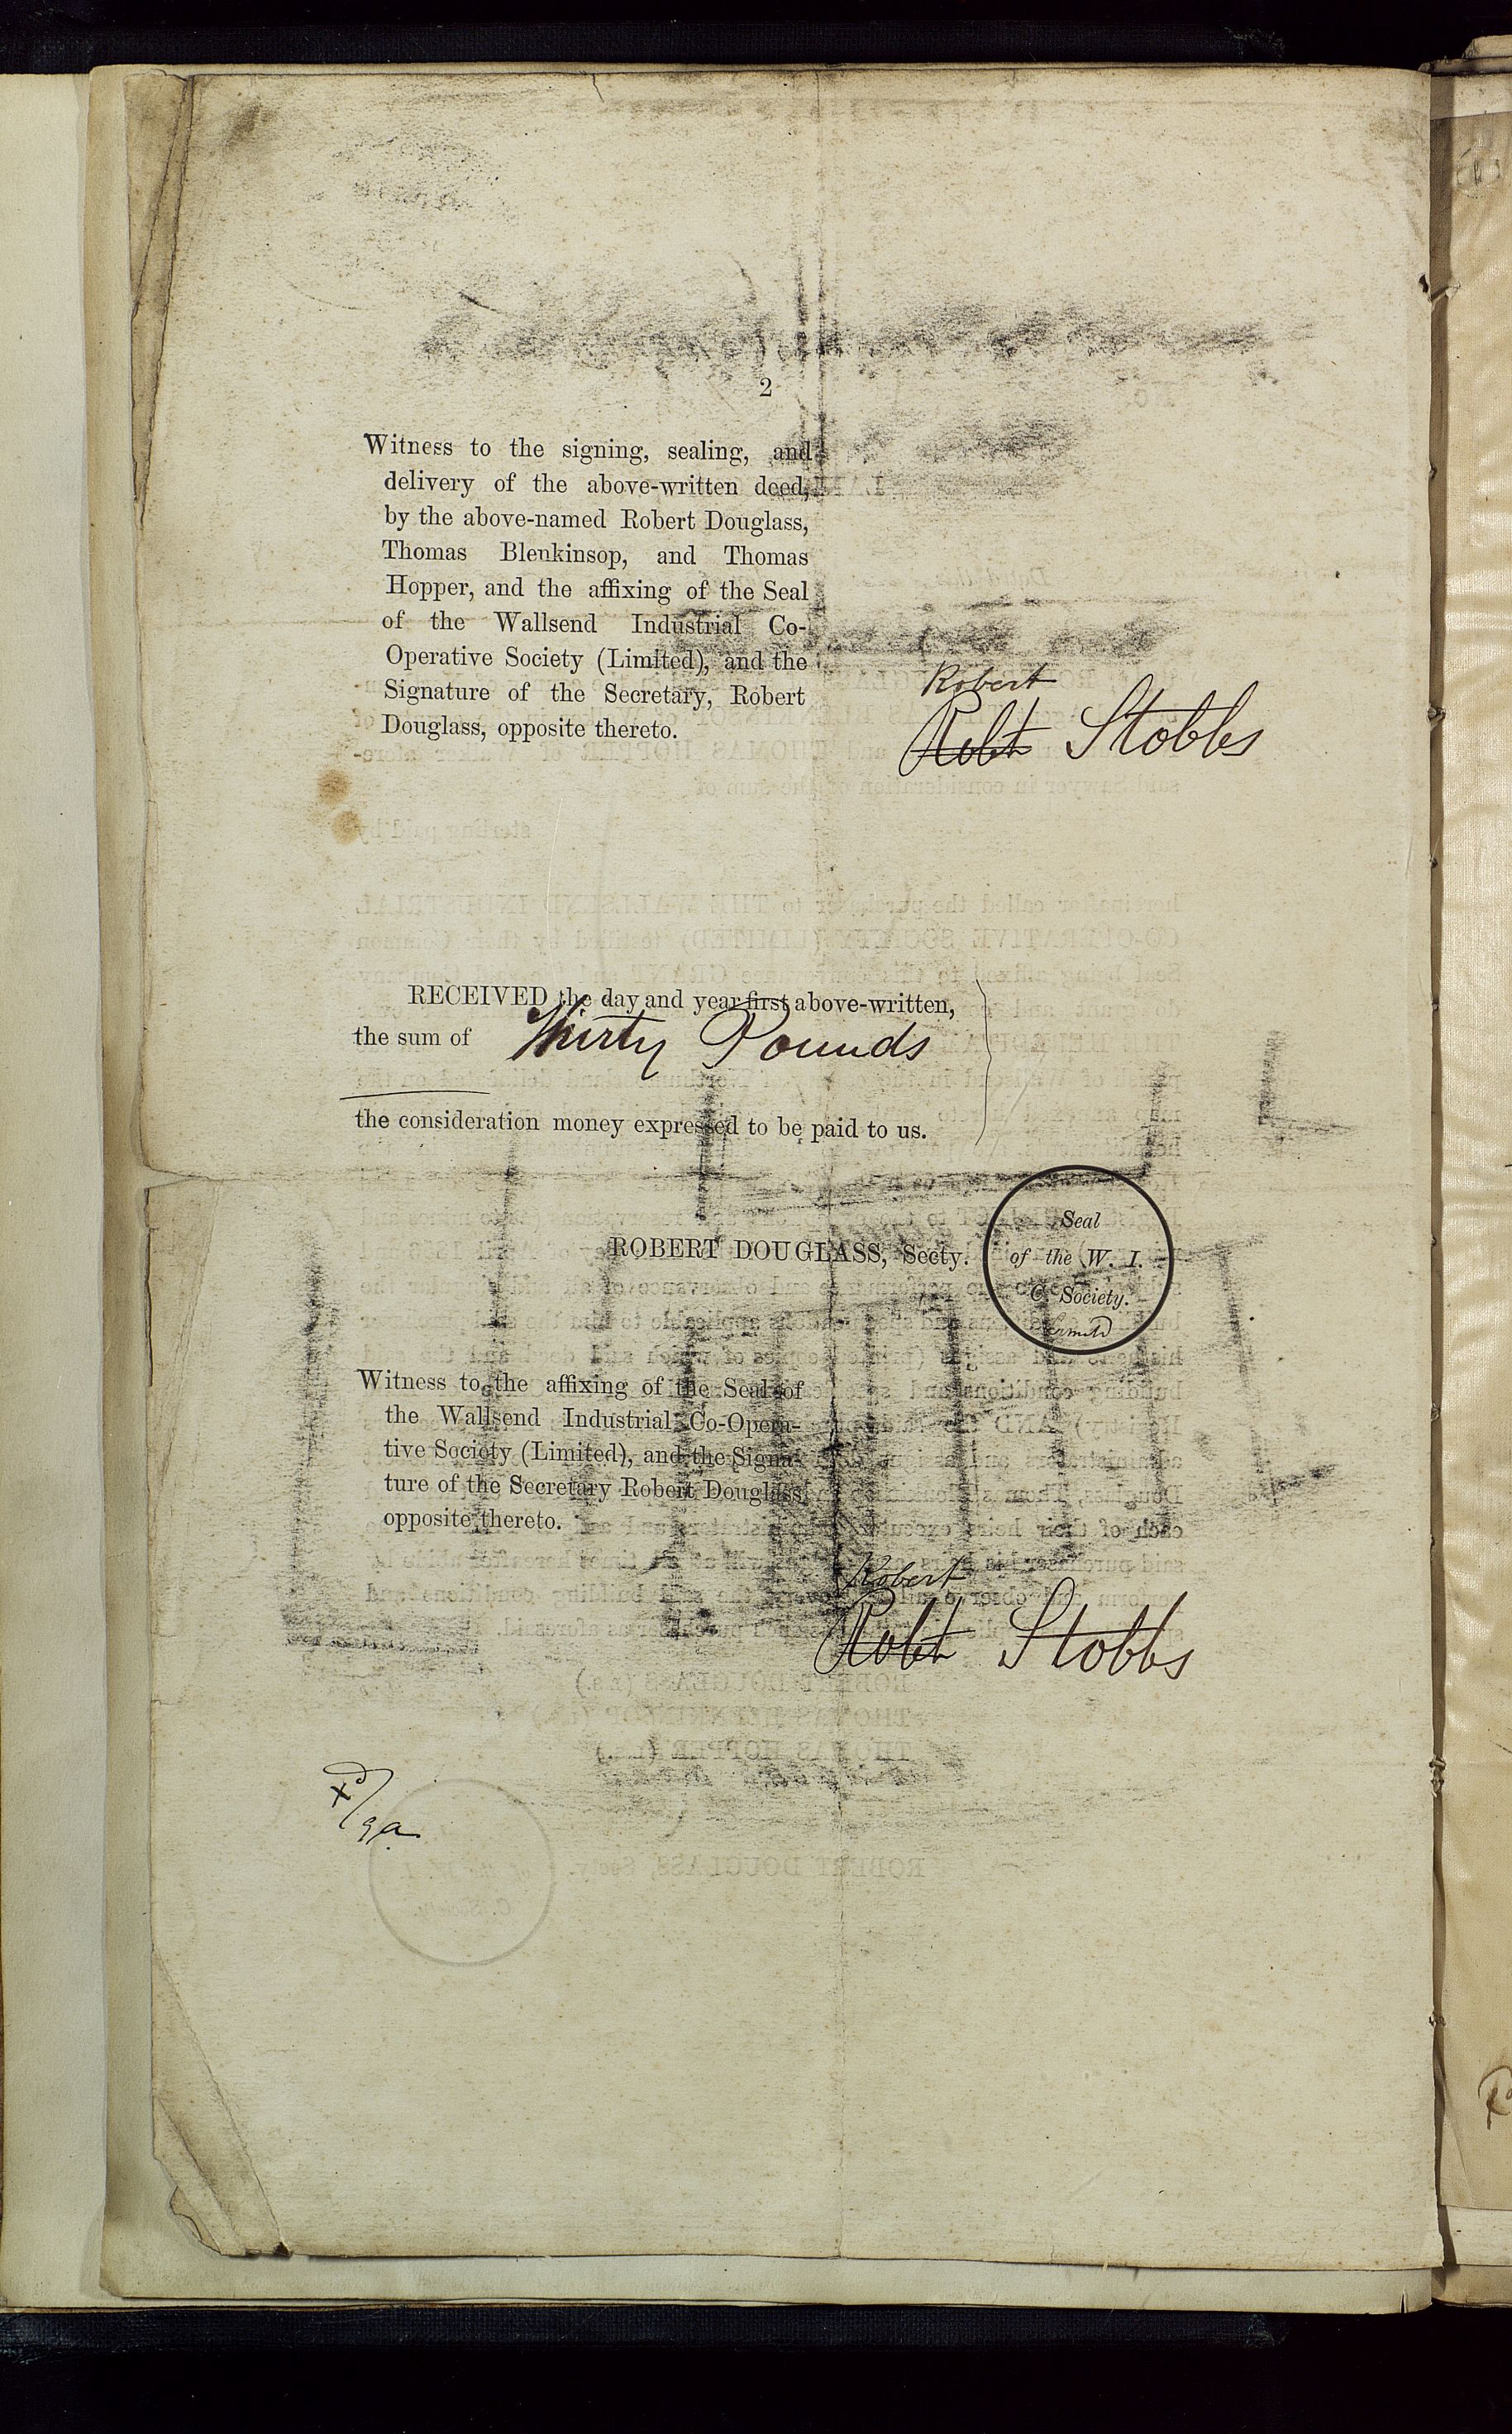 2
Witness to the signing, sealing, and
delivery of the above-written deed,
by the above-named Robert Douglass,
Thomas Blenkinsop, and Thomas
Hopper, and the affixing of the Seal
of the Wallsend Industrial Co-
Operative Society (Limited), and the
Signature of the Secretary, Robert
Douglass, opposite thereto.
Robert
Robt Stobbs
RECEIVED the day and year first above-written,
the sum of Thirty Pounds
the consideration money expressed to be paid to us.
ROBERT DOUGLASS, Secty.
Seal
of the W. I.
C. Society.
Limitd
Witness to the affixing of the Seal of
the Wallsend Industrial Co-Opera-
tive Society (Limited), and the Signa-
ture of the Secretary Robert Douglass
opposite thereto.
Robert
Robt Stobbs